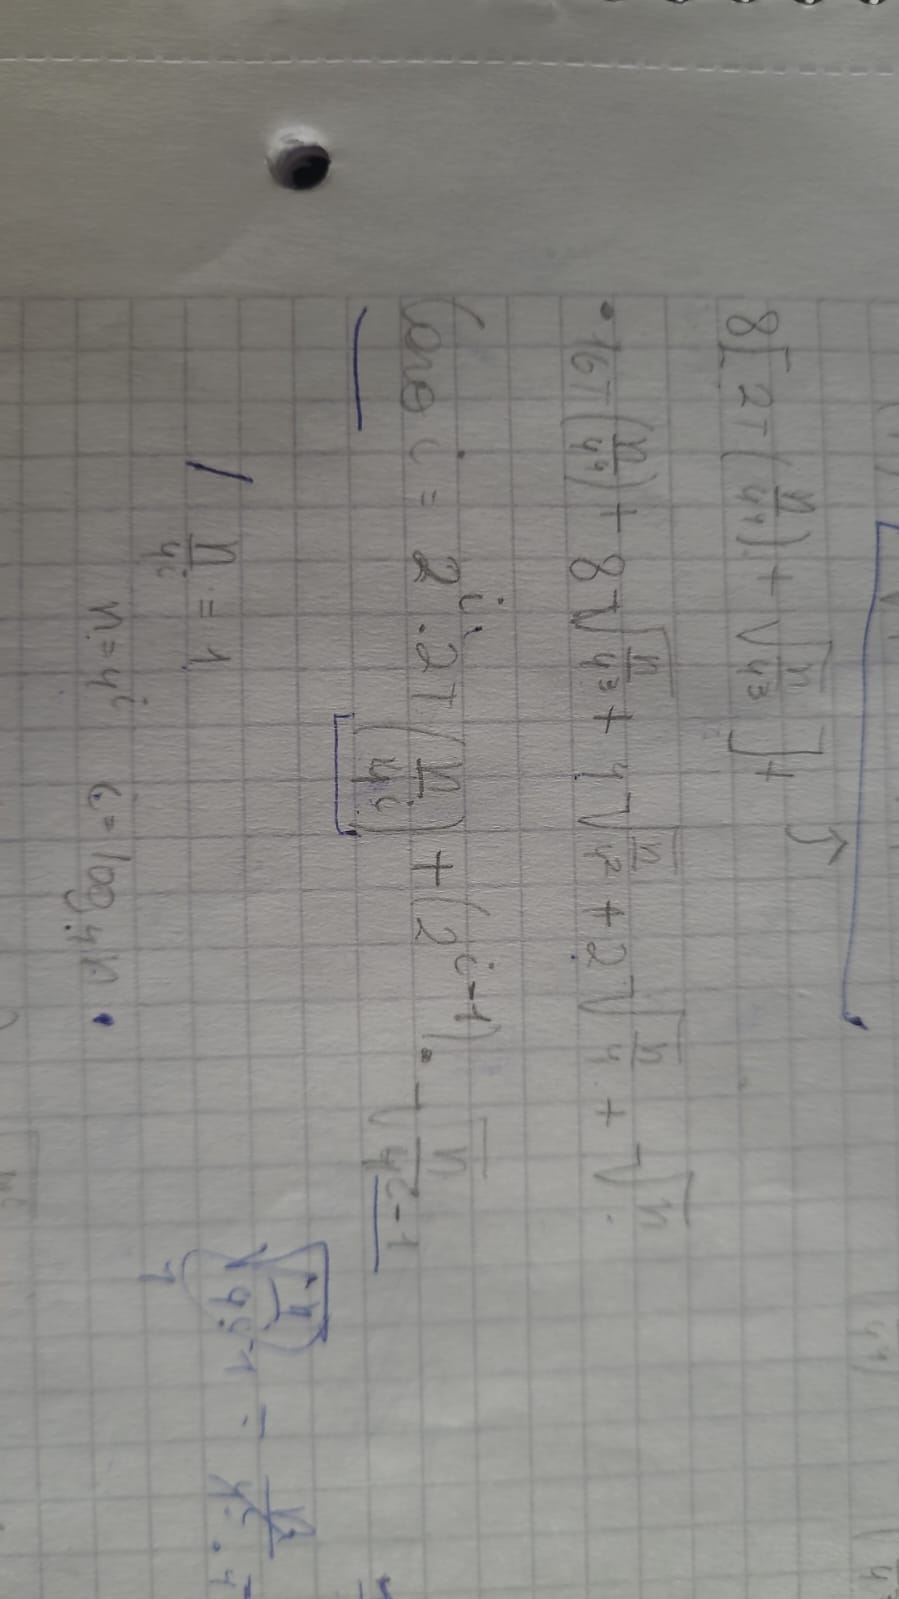 8[2T(n/4⁴) + √(n/4³)] +
• 16T(n/4⁴) + 8√(n/4³) + 4√(n/4²) + 2√(n/4) + √n
Caso i = 2ⁱ · 2T(n/4ⁱ) + (2ⁱ⁻¹) · √(n/4ⁱ⁻¹)
n/4ⁱ = 1
n = 4ⁱ i = log₄n